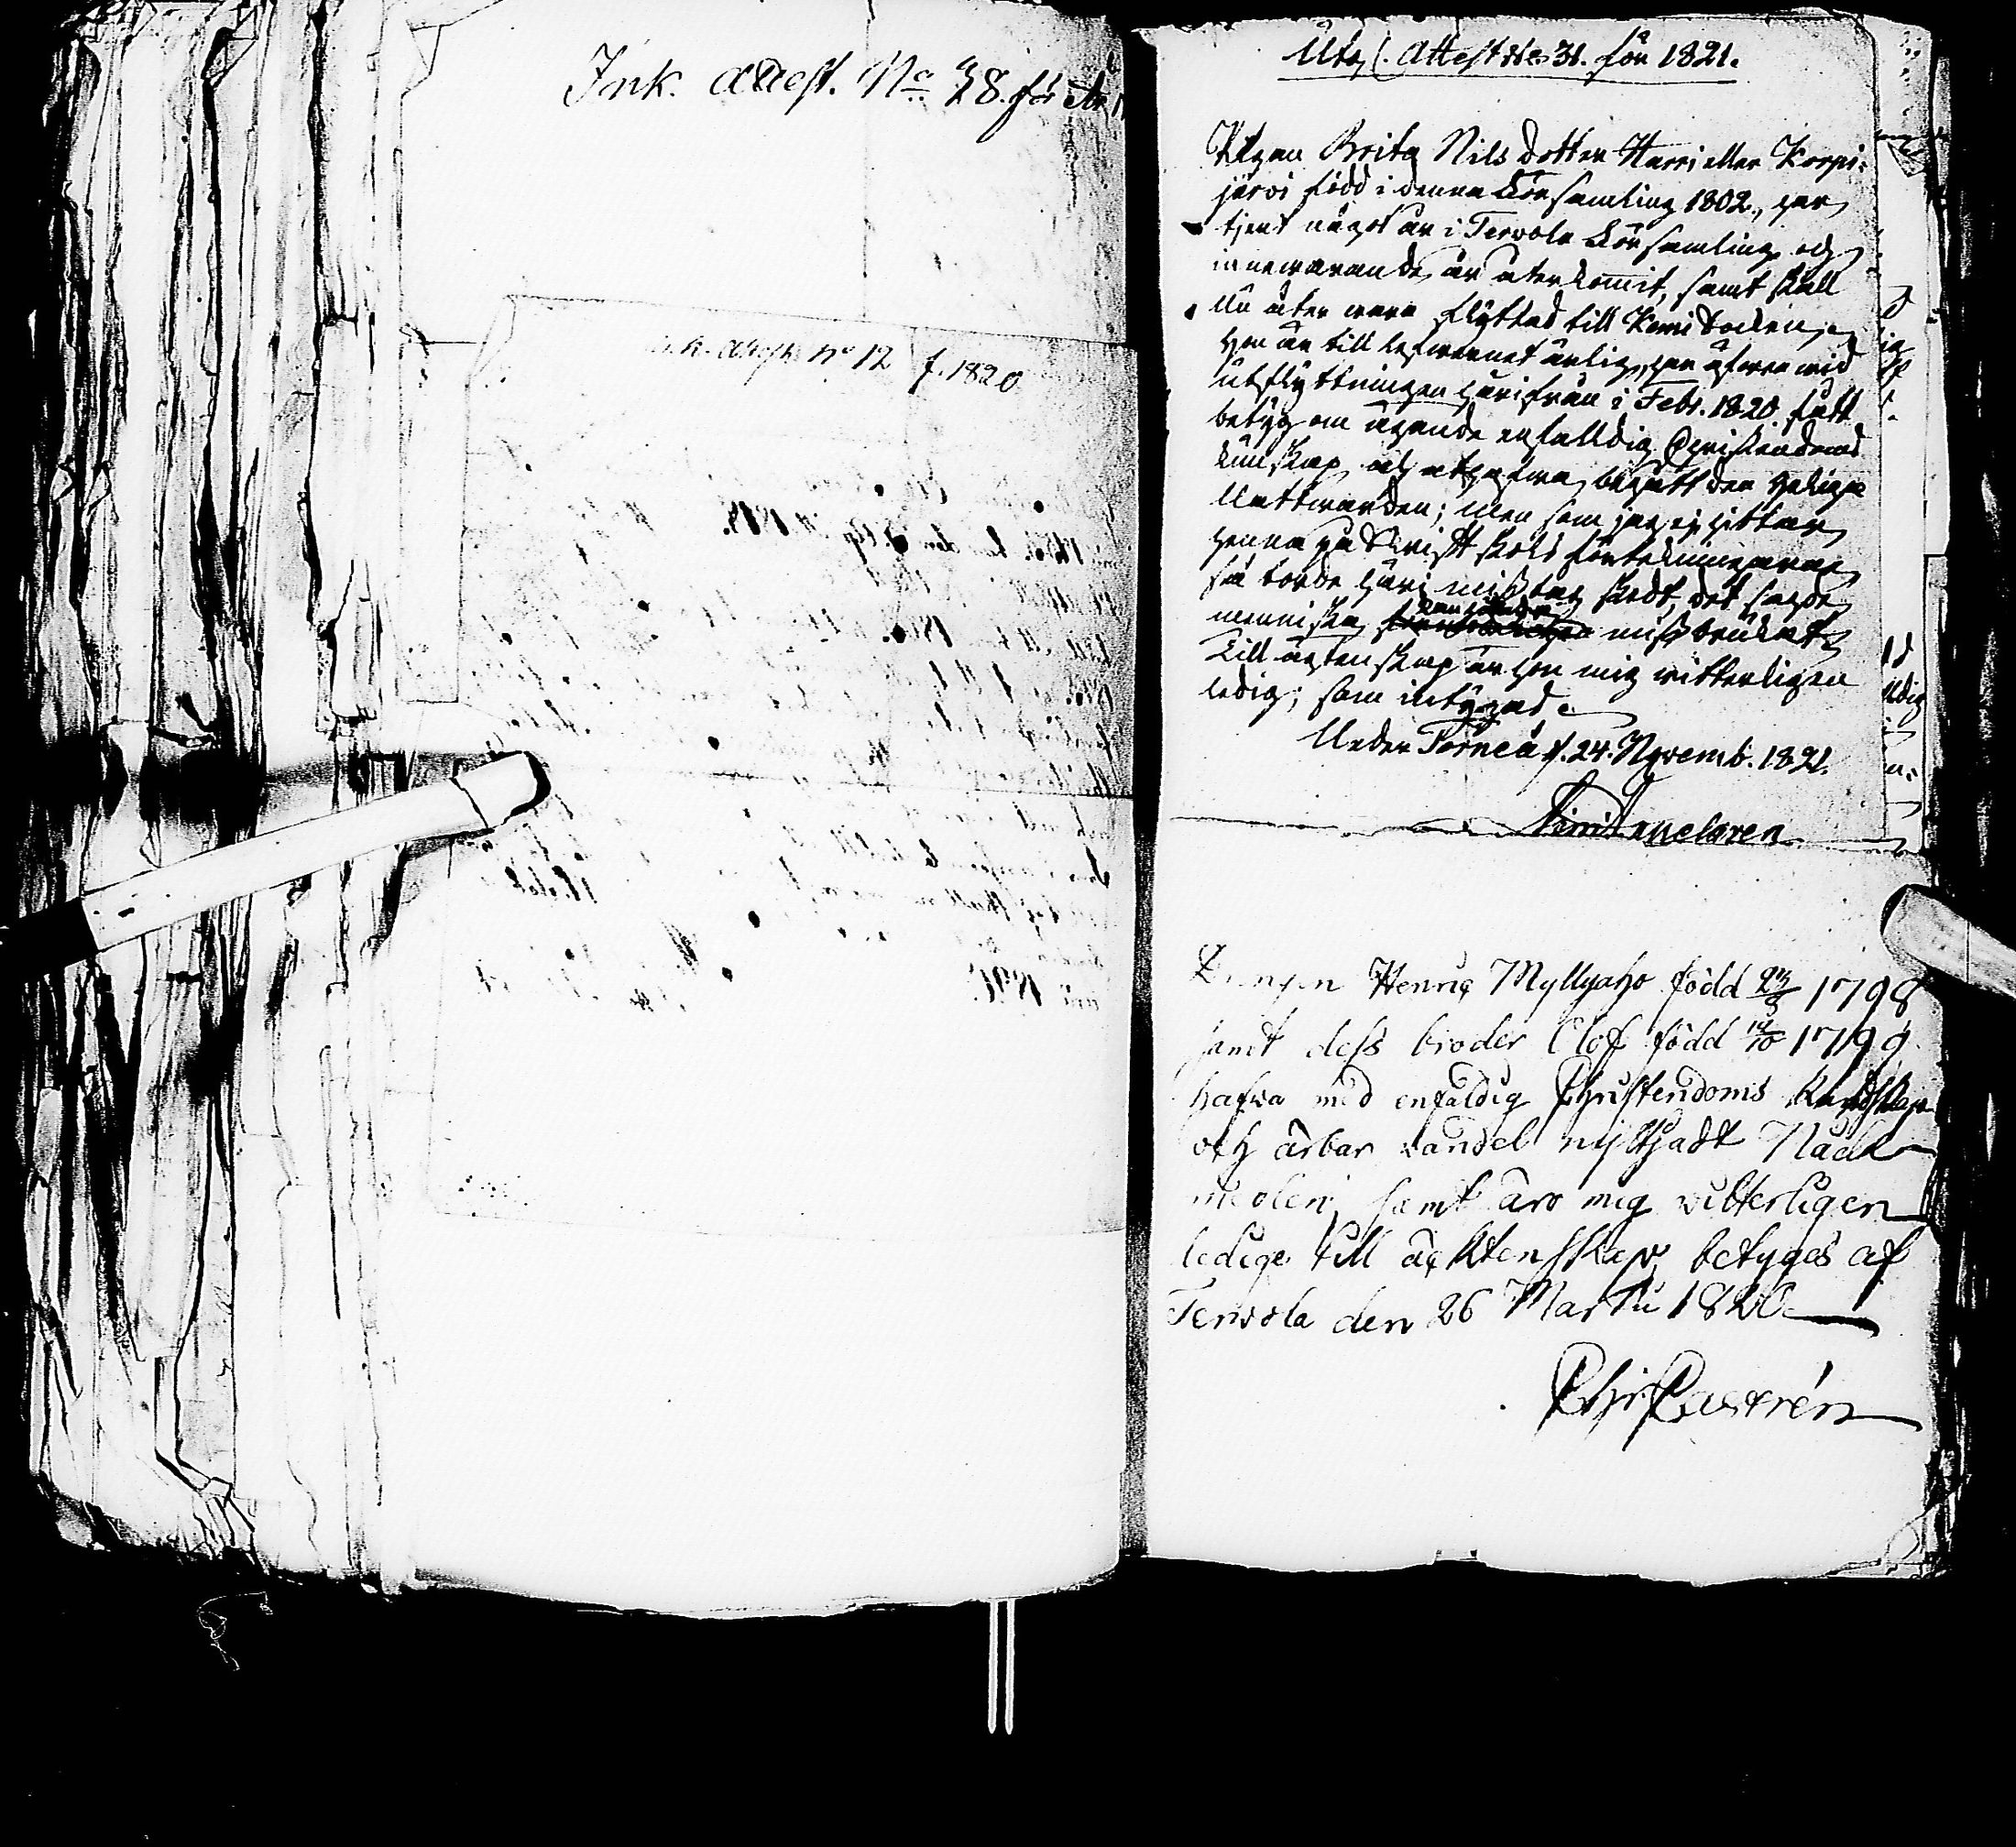 Ink. Attest. No 38. för
Attest No 12 f. 1820
Utg. Attest No 31. för 1821.
Pigan Brita Nils dotter Harri eller Korpi-
järvi född i denna Församling 1802., har
tjent något år i Terwola Församling och
innewarande år återkommit, samt skall
nu åter wara flyttad till Kemi Socken;
Hon är till lefwernet ärlig, har äfwen wid
utflyttningen härifrån i Febr. 1820 fått
betyg om ägande enfalldig Christendoms
kunskap och at hafwa begått den Heliga
Nattwarden; men som jag ej hittar
henne på Skriftskols förtekningarne
så torde häri misstag skedt, det sagde
menniska missbrukat
Till ägtenskap är hon mig witterligen
ledig; som intygad
Neder Torneå d. 24. Novemb. 1821.
Drengen Henric Myllyaho född 1798
samt dess broder Olof född 1799
hafwa med enfaldig Christendoms Kundskap
och ärbar vandel nyttjadt Nåde
medlen, samt äro mig witterligen
ledige till äcktenskap, betyges af
Terwola den 26 Martii 1820
Chr. Castrén